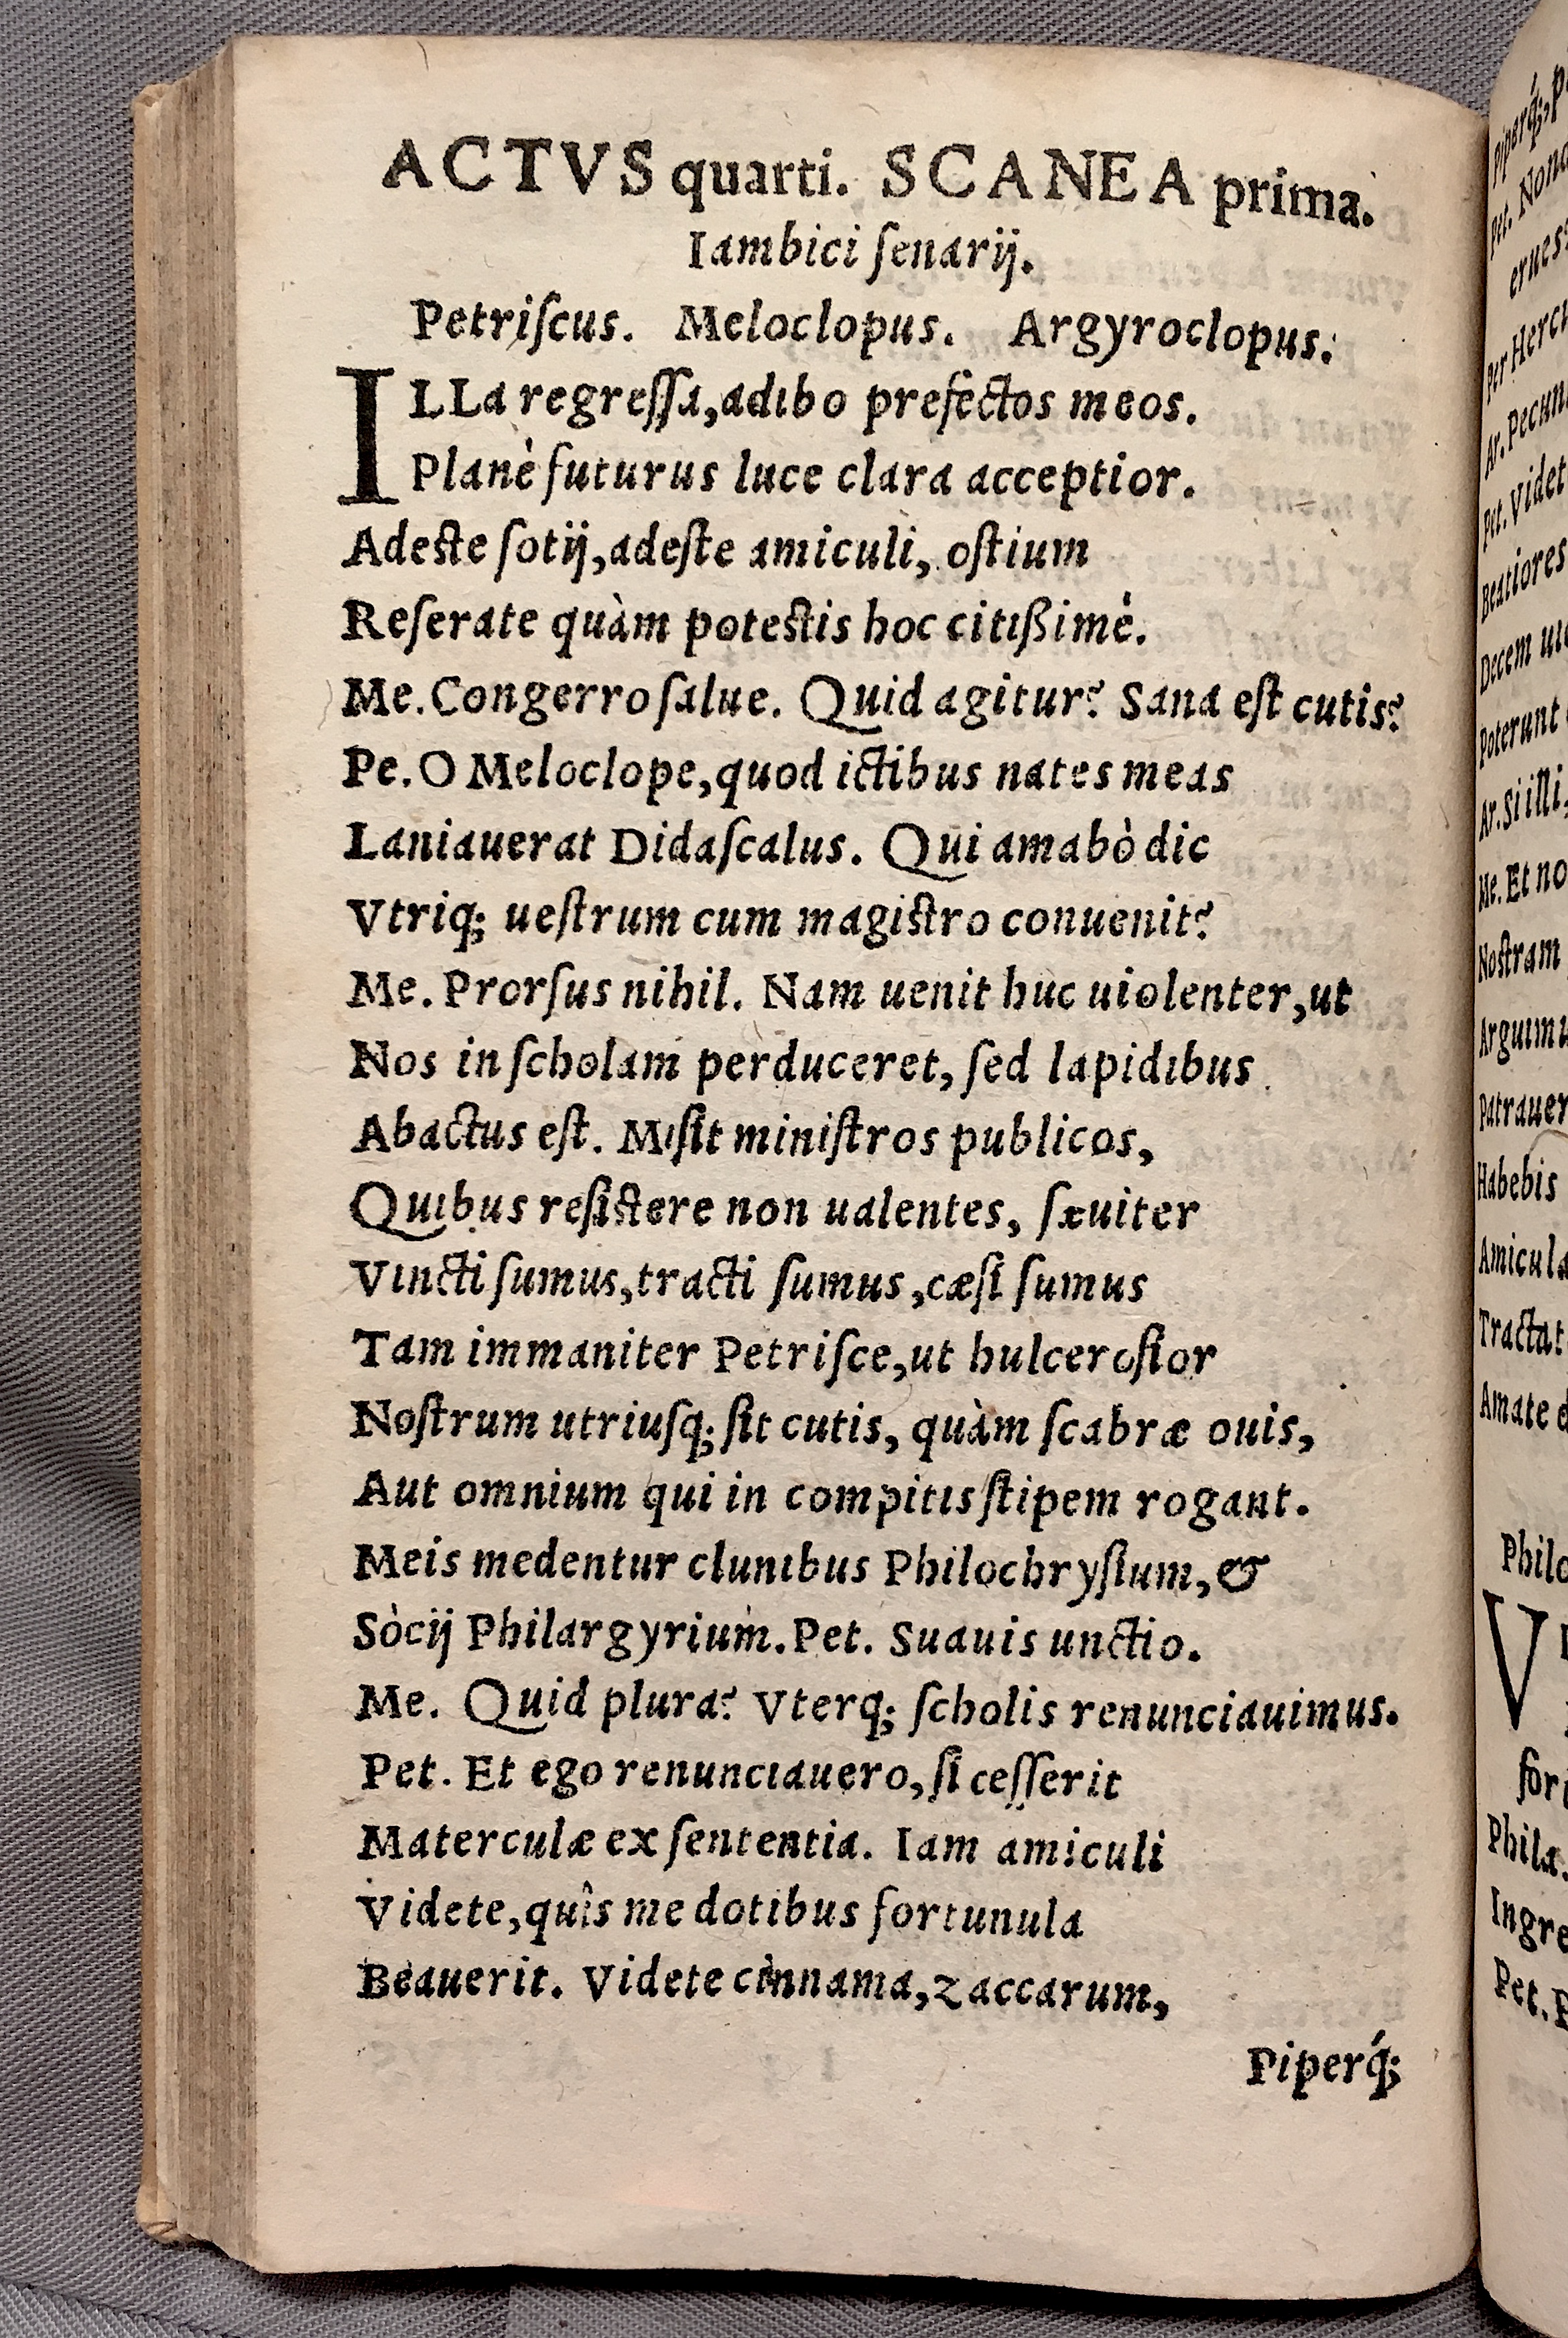 ACTVS quarti. SCANEA prima.
Iambici ſenarij.
Petriſcus. Meloclopus. Argyroclopus.
ILLa regreſſa, adibo prefectos meos.
Planè futurus luce clara acceptior.
Adeſte ſotij, adeſte amiculi, oſtium
Reſerate quàm poteſtis hoc citißimè.
Me. Congerro ſalue. Quid agitur? Sana eſt cutis?
Pe. O Meloclope, quod ictibus nates meas
Laniauerat Didaſcalus. Qui amabò dic
Vtriq; ueſtrum cum magiſtro conuenit?
Me. Prorſus nihil. Nam uenit huc uiolenter, ut
Nos in ſcholam perduceret, ſed lapidibus
Abactus eſt. Miſit miniſtros publicos,
Quibus reſiſtere non ualentes, ſæuiter
Vincti ſumus, tracti ſumus, cæſi ſumus
Tam immaniter Petriſce, ut hulceroſior
Noſtrum utriuſq; ſit cutis, quàm ſcabræ ouis,
Aut omnium qui in compitis ſtipem rogant.
Meis medentur clunibus Philochryſium, &
Sòcij Philargyrium. Pet. Suauis unctio.
Me. Quid plura? Vterq; ſcholis renunciauimus.
Pet. Et ego renunciauero, ſi ceſſerit
Materculæ ex ſententia. Iam amiculi
Videte, quîs me dotibus fortunula
Beauerit. Videte cinnama, zaccarum,
Piperq́;
Piperq́;, p
Pet. Nonc
eruess
Per Hercu
Ar. Pecun
Pet. Videt
Beatiores
Decem
Poterunt
Ar. Si illi,
Me. Et no
Noſtram
Arguimu
Patrauer
Habebis
Amicula
Tractat
Amate
Philo
V
fori
Phila.
Ingre
Pet.